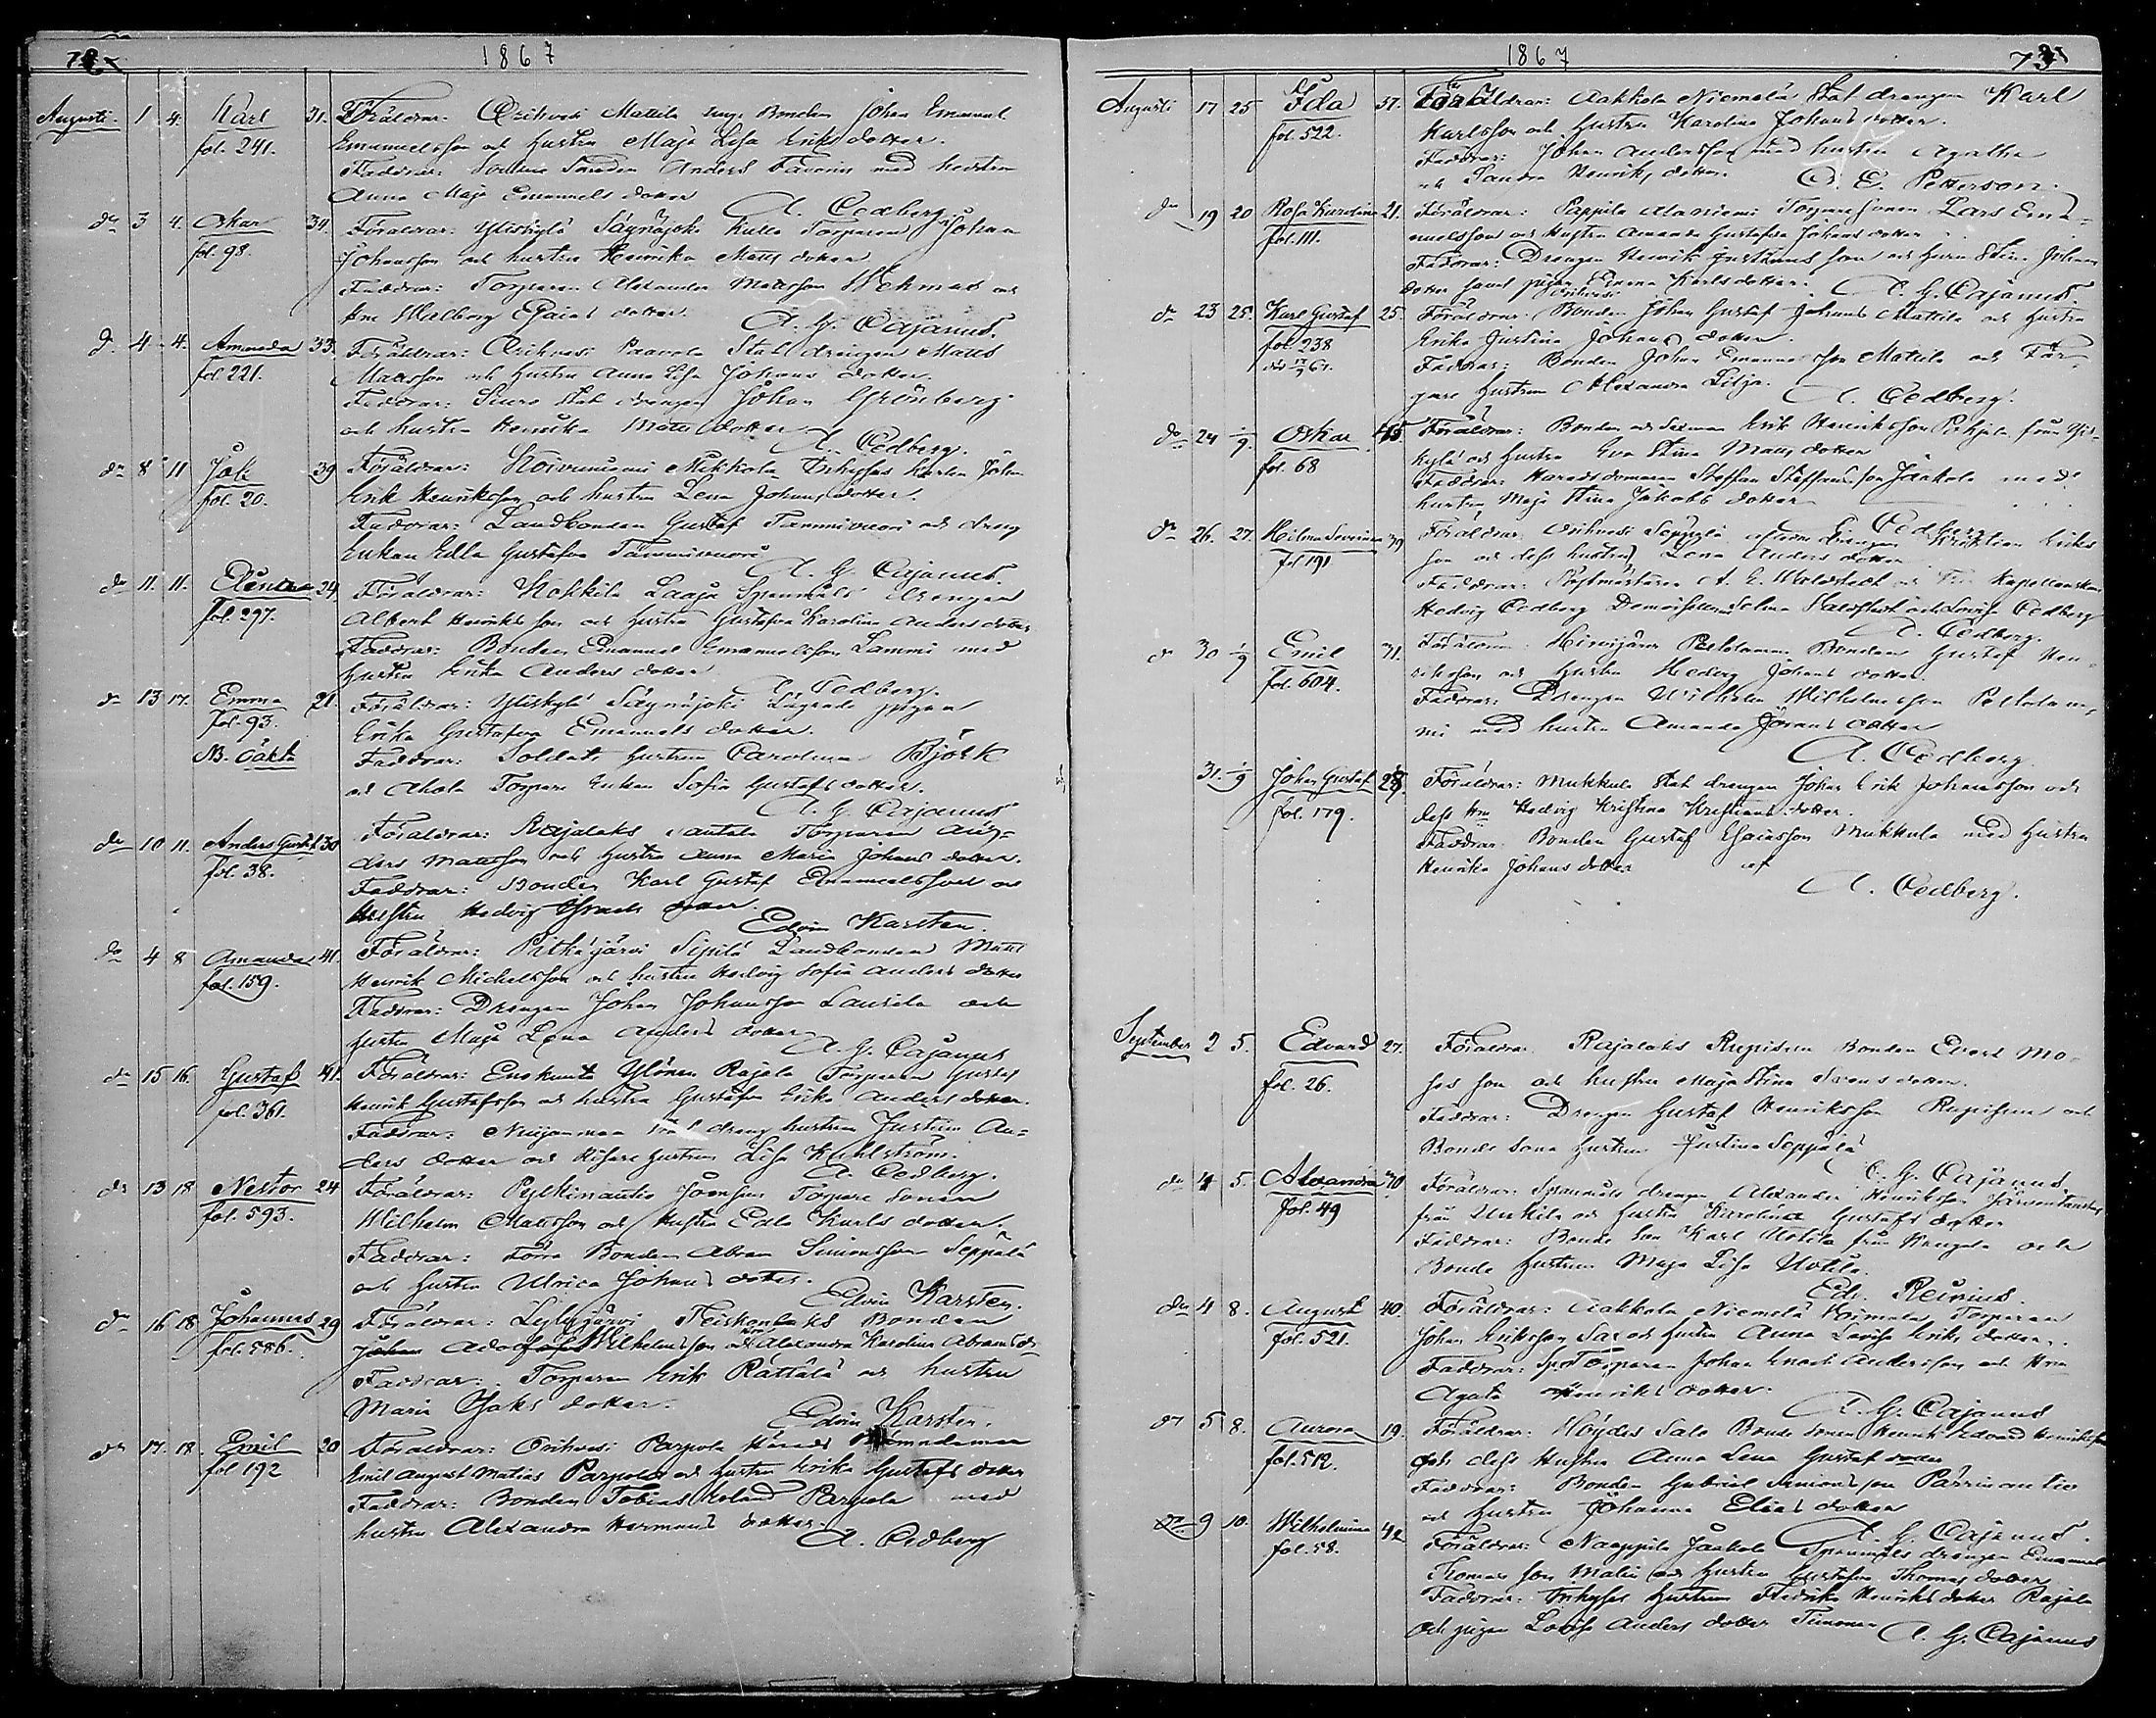 1867
Augusti 1 4. Karl 31. Föräldrar: Orihvesi Mattila unge Bonden Johan Emanuel
fol. 241. Emanuelsson och hustru Maja Lisa Eriks dotter.
Faddrar: Anders med hustru
Anna Maja Emanuels dotter
A. Cedberg.
do 3 4. Oskar 34. Föräldrar: Yliskylä Säynäjoki Torparen Johan
fol. 98. Johansson och hustru Henrika Matts dotter
Faddrar: Torparen Alexander Mattsson Wehmas och
Hru Walborg Esaias dotter.
A. G. Cajanus.
do 4 4. Amanda 33. Föräldrar: Orihvesi Paavola Stat drengen Matts
fol. 221. Mattsson och hustru Anna Lisa Johans dotter.
Faddrar: Siuro Stat drengen Johan Grönberg
och hustru Henrika Matts dotter
A. Cedberg.
do 8 11 Joh 39 Föräldrar: Koivuniemi Mikkola Inhyses Karlen Johan
fol. 20. Erik Henriksson och hustru Lena Johans dotter.
Faddrar: Landbonden Gustaf Tammivuori och dreng
Enkan Ulla Gustafva Tammivuori
A. G. Cajanus.
do 11. 11. 24. Föräldrar: Kokkila Laaja Spanmåls drengen
fol. 297. Albert Henriksson och hustru Gustafva Karolina Anders dotter
Faddrar: Bonden Emanuel Emanuelsson Lammi med
hustru Erika Anders dotter
A. Cedberg.
do 13 17. Emma 21. Föräldrar: Yliskylä Säynäjoki Lägrade pigan
fol. 93. Erika Gustafva Emanuels dotter.
NB. Oäkta Faddrar: Soldats hustrun Carolina Björk
och Ahola Torpare Enkan Sofia Gustafs dotter.
A. G. Cajanus
do 10 11. Anders Gustaf 30 Föräldrar: Rajalaks Torparen An-
fol. 38. ders Mattsson och hustru Anna Maria Johans dotter.
Faddrar: Bonden Karl Gustaf Emanuelsson och
Hustru Hedvig Isacks dotter.
Edvin Karsten.
do 4 8 Amanda 41. Föräldrar: Pitkäjärvi Sipilä Landbonden Matts
fol. 159. Henrik Michelsson och hustru Hedvig Sofia Anders dotter
Faddrar: Drengen Johan Johansson Laurila och
hustru Maja Lena Anders dotter
A. G. Cajanus
do 15 16. Gustaf 41. Föräldrar: Enokunta Ylönen Rajala Torparen Gustaf
fol. 361. Henrik Gustafsson och hustru Gustafva Erika Anders dotter.
Faddrar: Stat dreng hustrun Justina An-
ders dotter och hustrun Lisa Kuhlström.
A. Cedberg.
do 13 18 Nestor 24 Föräldrar: Pylkinautio Torpare sonen
fol. 593. Wilhelm Mattsson och Hustru Edla Karls dotter.
Faddrar: Förre Bonden Abram Simonsson Seppälä
och hustru Ulrica Johans dotter.
Edvin Karsten.
do 16 18 Johannes 29 Föräldrar: Lylyjärvi Teiskonlaks Bonden
fol. 586. Johan Adolf Wilhelmsson och Alexandra Karolina Abrams dr
Faddrar: Torparen Erik Rättälä och hustru
Maria Isaks dotter.
Edvin Karsten.
do 17. 18. Emil 20 Föräldrar: Orihvesi Parpola Härads
fol 192 Emil August Matias Parpola och hustru Erika Gustafs dotter
Faddrar: Bonden Tobias Roland Parpola med
hustru Alexandra Hermans dotter.
A. Cedberg
1867
73
Augusti 17 25 Ida 37. Föräldrar: Aakkola Niemelä Stat drengen Karl
fol. 522. Karlsson och Hustru Karolina Johans dotter.
Faddrar: Johan Andersson med hustru Agatha
och Sandra Henriks dotter.
O. E. Petterson.
do 19 20 Rosa Karolina 21. Föräldrar: Pappila Alaniemi Torpare sonen Lars Ema-
fol. 111. nuelsson och Hustru Amanda Gustafva Johans dotter
Faddrar: Drengen Henrik son och Hustru Stina Johans
dotter samt pigan Emma Karls dotter.
A. G. Cajanus.
Orihvesi
do 23 25. Karl Gustaf 25. Föräldrar: Bonden Johan Gustaf Johansson Mattila och hustru
fol. 238 Erika Justina Johans dotter.
Faddrar: Bonden Johan Emanuelsson Mattila och Fär-
gare hustrun Alexandra Lilja.
A. Cedberg.
do 24 1/9. Oskar 45. Föräldrar: Bonden och Sexman Erik Henriksson Pihjala från Yli-
fol. 68 kylä och hustru Eva Stina Matts dotter
Faddrar: Häradsdomaren Staffan Staffansson Jaakola med
hustru Maja Stina Jakobs dotter
A. Cedberg
do 26. 27. Hilma Severina 39 Föräldrar: Orihvesi Seppälä drengen Kristian Eriks
fol 191 son och dess hustru Lena Anders dotter
Faddrar: Postmästaren A. E. Woldstedt och Fru Kapellanskan
Hedvig Cedberg Demoisellerna Selma Waldstedt och Lovisa Cedberg
A. Cedberg.
do 30 1/9 Emil 31. Föräldrar: Hirvijärvi Peltolammi Bonden Gustaf Hen-
fol. 604. riksson och hustru Hedvig Johans dotter
Faddrar: Drengen Wilhelm Wilhelmsson Peltolam-
mi med hustru Amanda Jörans dotter
A. Cedberg.
31. 1/9 Johan Gustaf 28. Föräldrar: Mukkula Stat drengen Johan Erik Johansson och
fol. 179. dess Hru Hedvig Kristina Kristians dotter.
Faddrar: Bonden Gustaf Esaiasson Mukkula med hustru
Henrika Johans dotter af
A. Cedberg.
September 2 5. Edvard 27. Föräldrar: Rajalaks Rupisen Bonden Evert Mo-
fol. 26. ses son och hustru Maja Stina Svens dotter.
Faddrar: Drengen Gustaf Henriksson Rupisen och
Bonde sons hustrun Justina Seppälä
A. G. Cajanus
do 4 5. Alexandra 40 Föräldrar: Spanmåls drengen Alexander Henriksson
fol. 49 från Uiskila och hustru Karolina Gustafs dotter
Faddrar: Bonde Son Karl Uotila från och
Bonde Hustrun Maja Lisa Uotila.
Edv. Reinius.
do 4 8. August 40. Föräldrar: Aakkola Niemelä Torparen
fol. 521. Johan Eriksson Sax och hustru Anna Lovisa Eriks dotter.
Faddrar: Torparen Johan Enoch Andersson och Hru
Agata Henriks dotter.
A. G. Cajanus
do 5 8. Aurora 19. Föräldrar: Höydes Salo Bonde sonen Henrik Edvard Henriksson
fol. 512. och dess Hustru Anna Lena Gustafs dotter
Faddrar: Bonden Gabriel Simonsson Pärrinautio
och hustru Johanna Elias dotter
A. G. Cajanus.
do 9 10. Wilhelmina 42 Föräldrar: Naappila Jaakola Spanmåls drengen Emanuel
fol. 58. Thomas son Malin och hustru Gustafva Thomas dotter
Faddrar: Inhyses hustrun Fredrika Henriks dotter Rajala
och pigan Lovisa Anders dotter Timonen
A. G. Cajanus